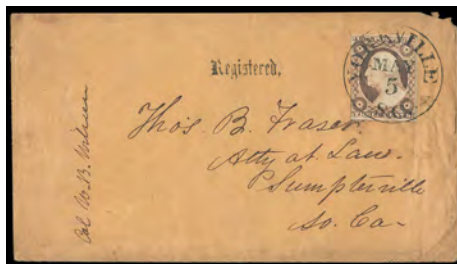 Registered.
YORKVILLE
MAY
5
S.C.
Thos. B. Fraser.
Atty at Law.
Sumpterville
So. Ca-
Col W. B. Wilson